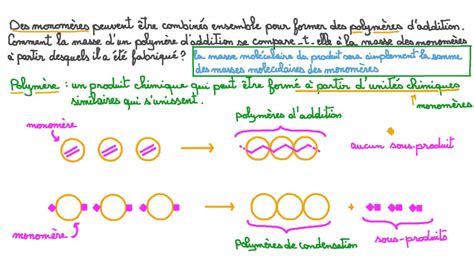 Des monomères peuvent être combinés ensemble pour former des polymères d'addition.
Comment la masse d'un polymère d'addition se compare-t-elle à la masse des monomères
à partir desquels il a été fabriqué ?
la masse moléculaire du produit sera simplement la somme
des masses moléculaires des monomères
Polymère : un produit chimique qui peut être formé à partir d'unités chimiques
similaires qui s'unissent.
monomères
monomère
Polymères d'addition
aucun sous-produit
monomère
Polymères de condensation
sous-produits